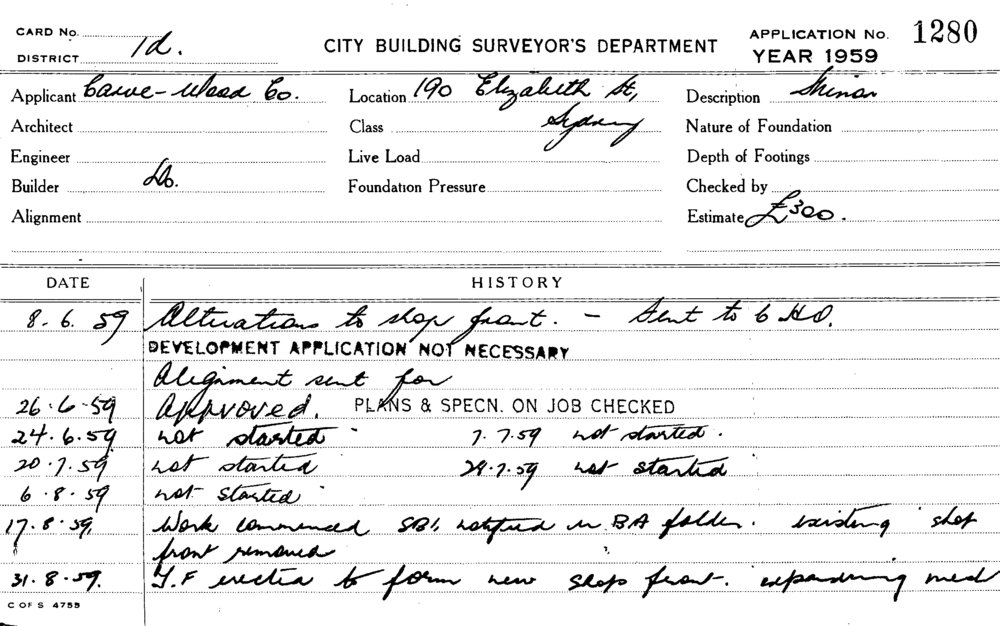 CARD No.
DISTRICT 1d.
CITY BUILDING SURVEYOR'S DEPARTMENT
APPLICATION No. 1280
YEAR 1959
Applicant Carve-Wood Co. Location 190 Elizabeth St, Description Minor
Architect Class Sydney Nature of Foundation
Engineer Live Load Depth of Footings
Builder Do. Foundation Pressure Checked by
Alignment Estimate £300.
DATE HISTORY
8.6.59 Alterations to shop front. - Sent to C.H.O.
DEVELOPMENT APPLICATION NOT NECESSARY
Alignment sent for
26.6.59 Approved. PLANS & SPECN. ON JOB CHECKED
24.6.59 not started 7.7.59 not started.
20.7.59 not started 29.7.59 not started
6.8.59 not started
17.8.59 Work commenced SBI. notified in BA folder. existing shop
front removed
31.8.59. T.F erected to form new shop front. expanding med
C OF S 4755